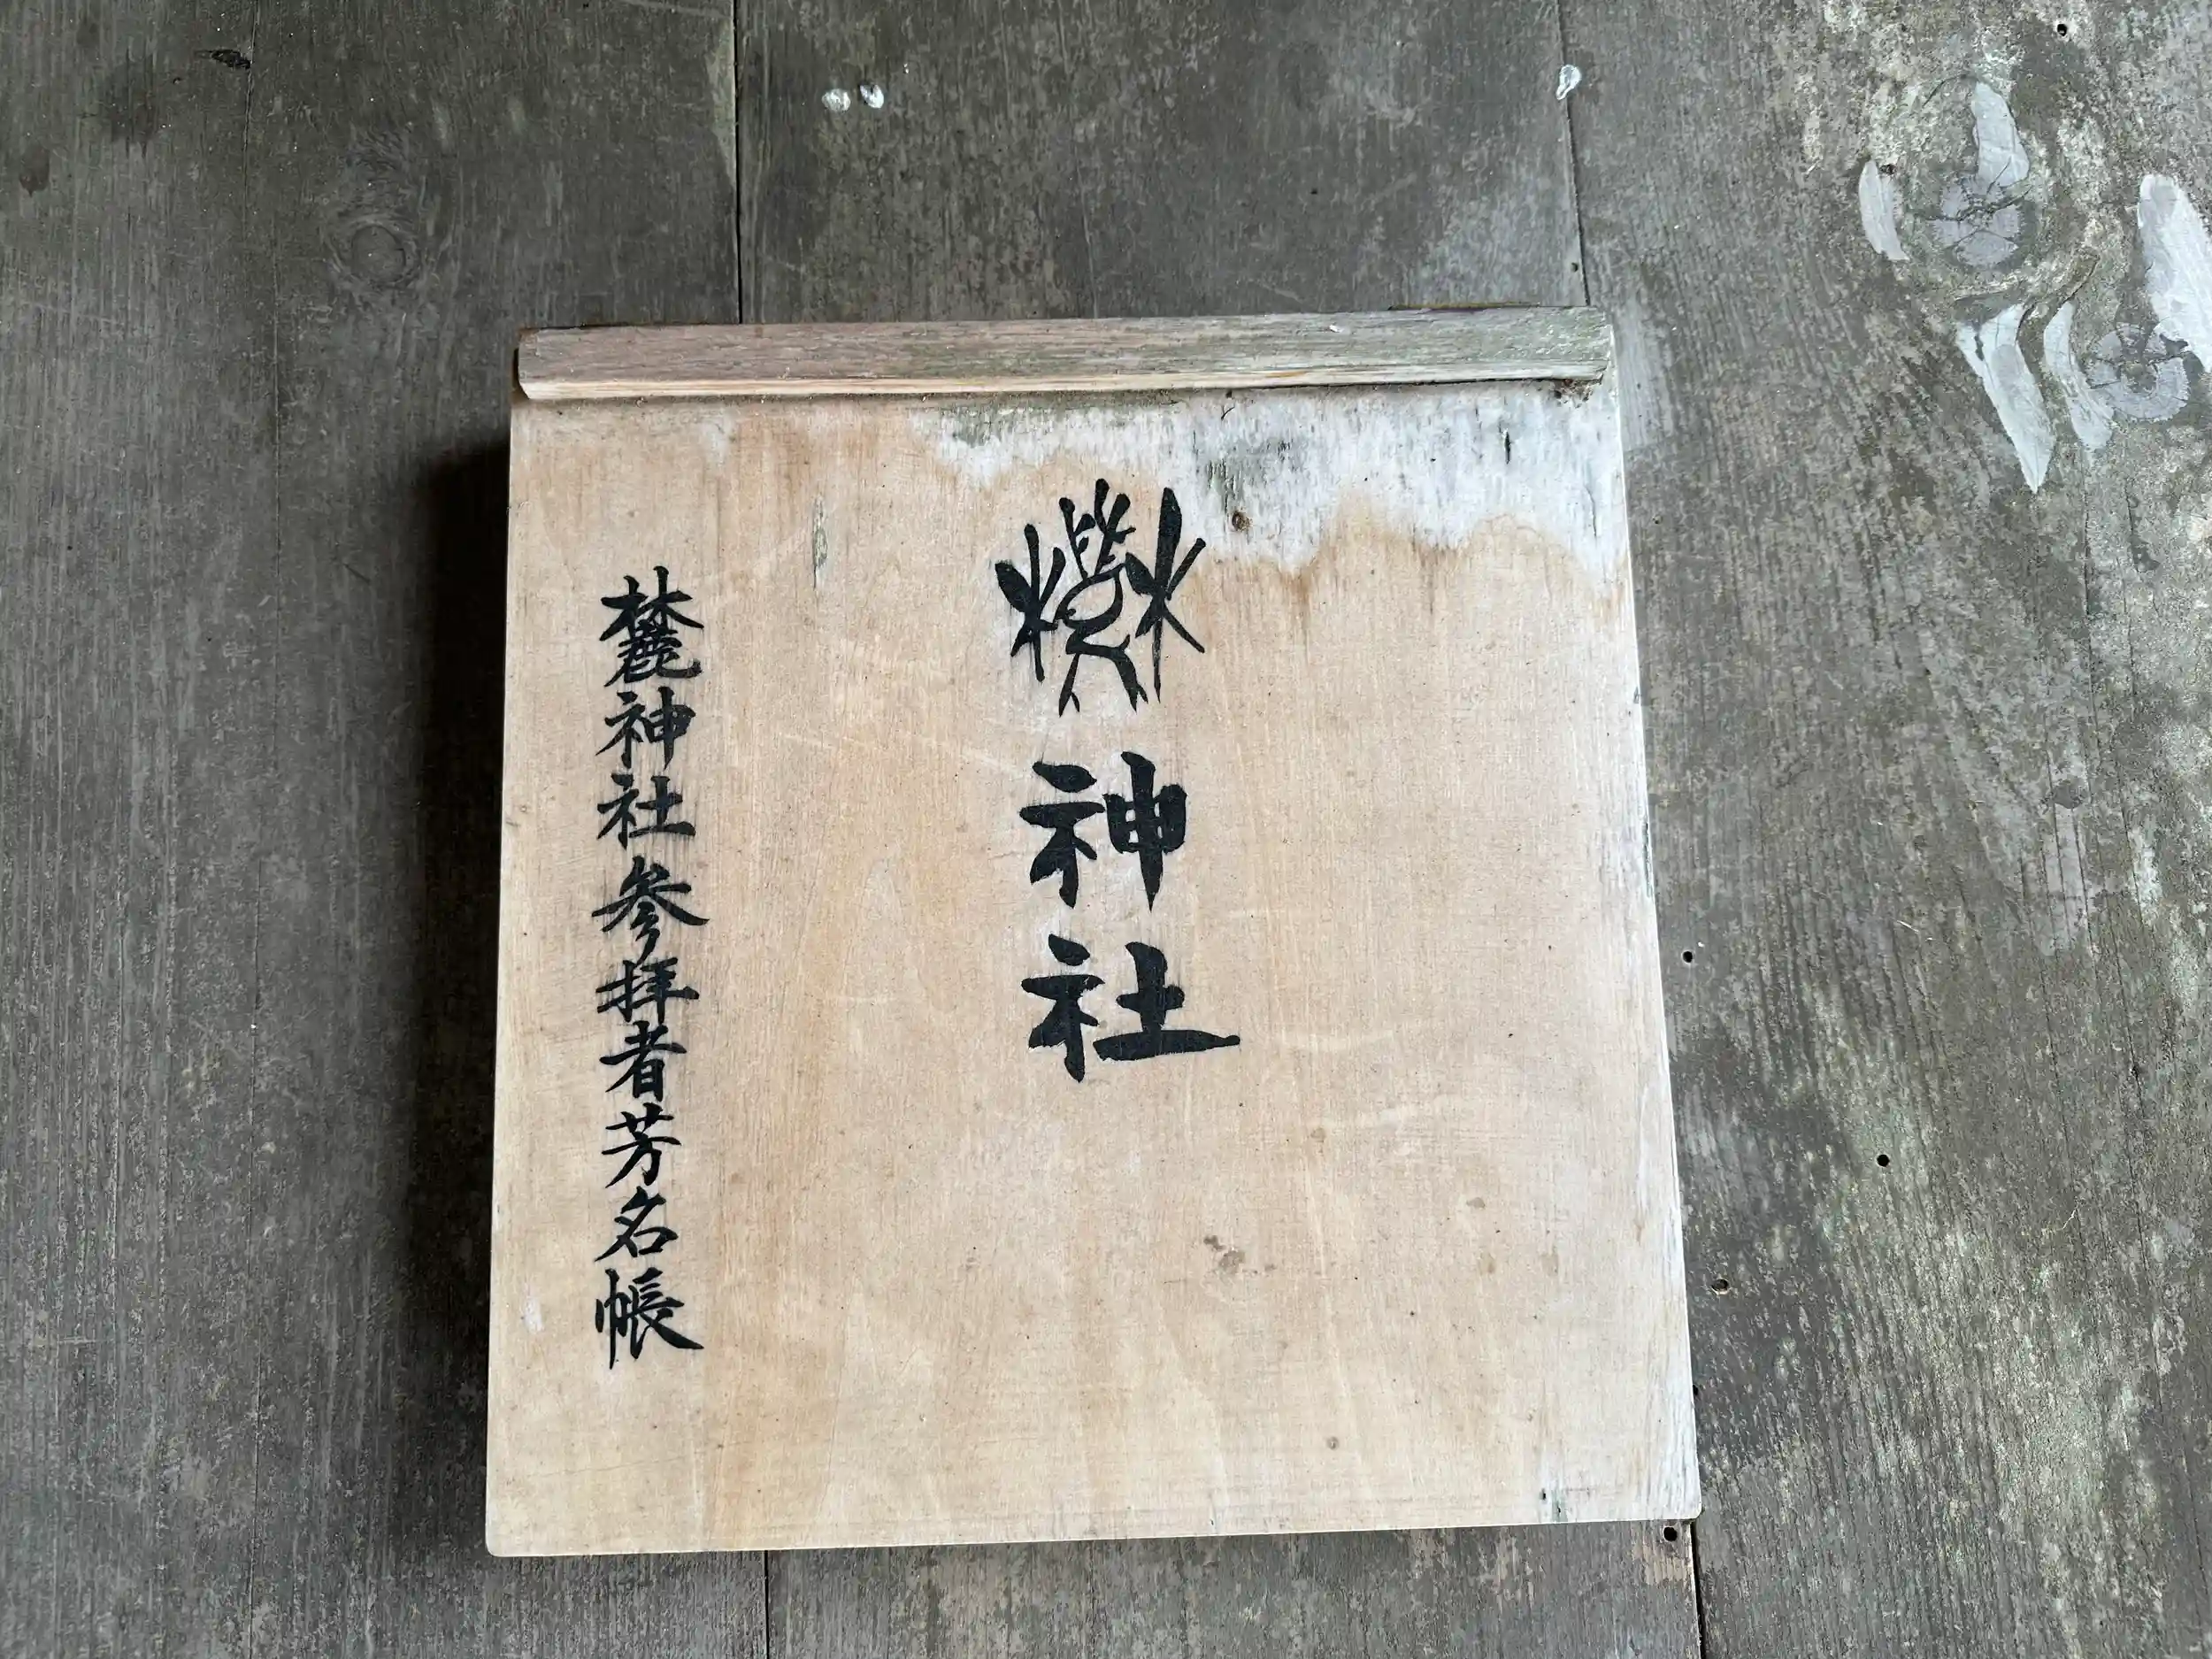 麓神社
麓神社参拝者芳名帳